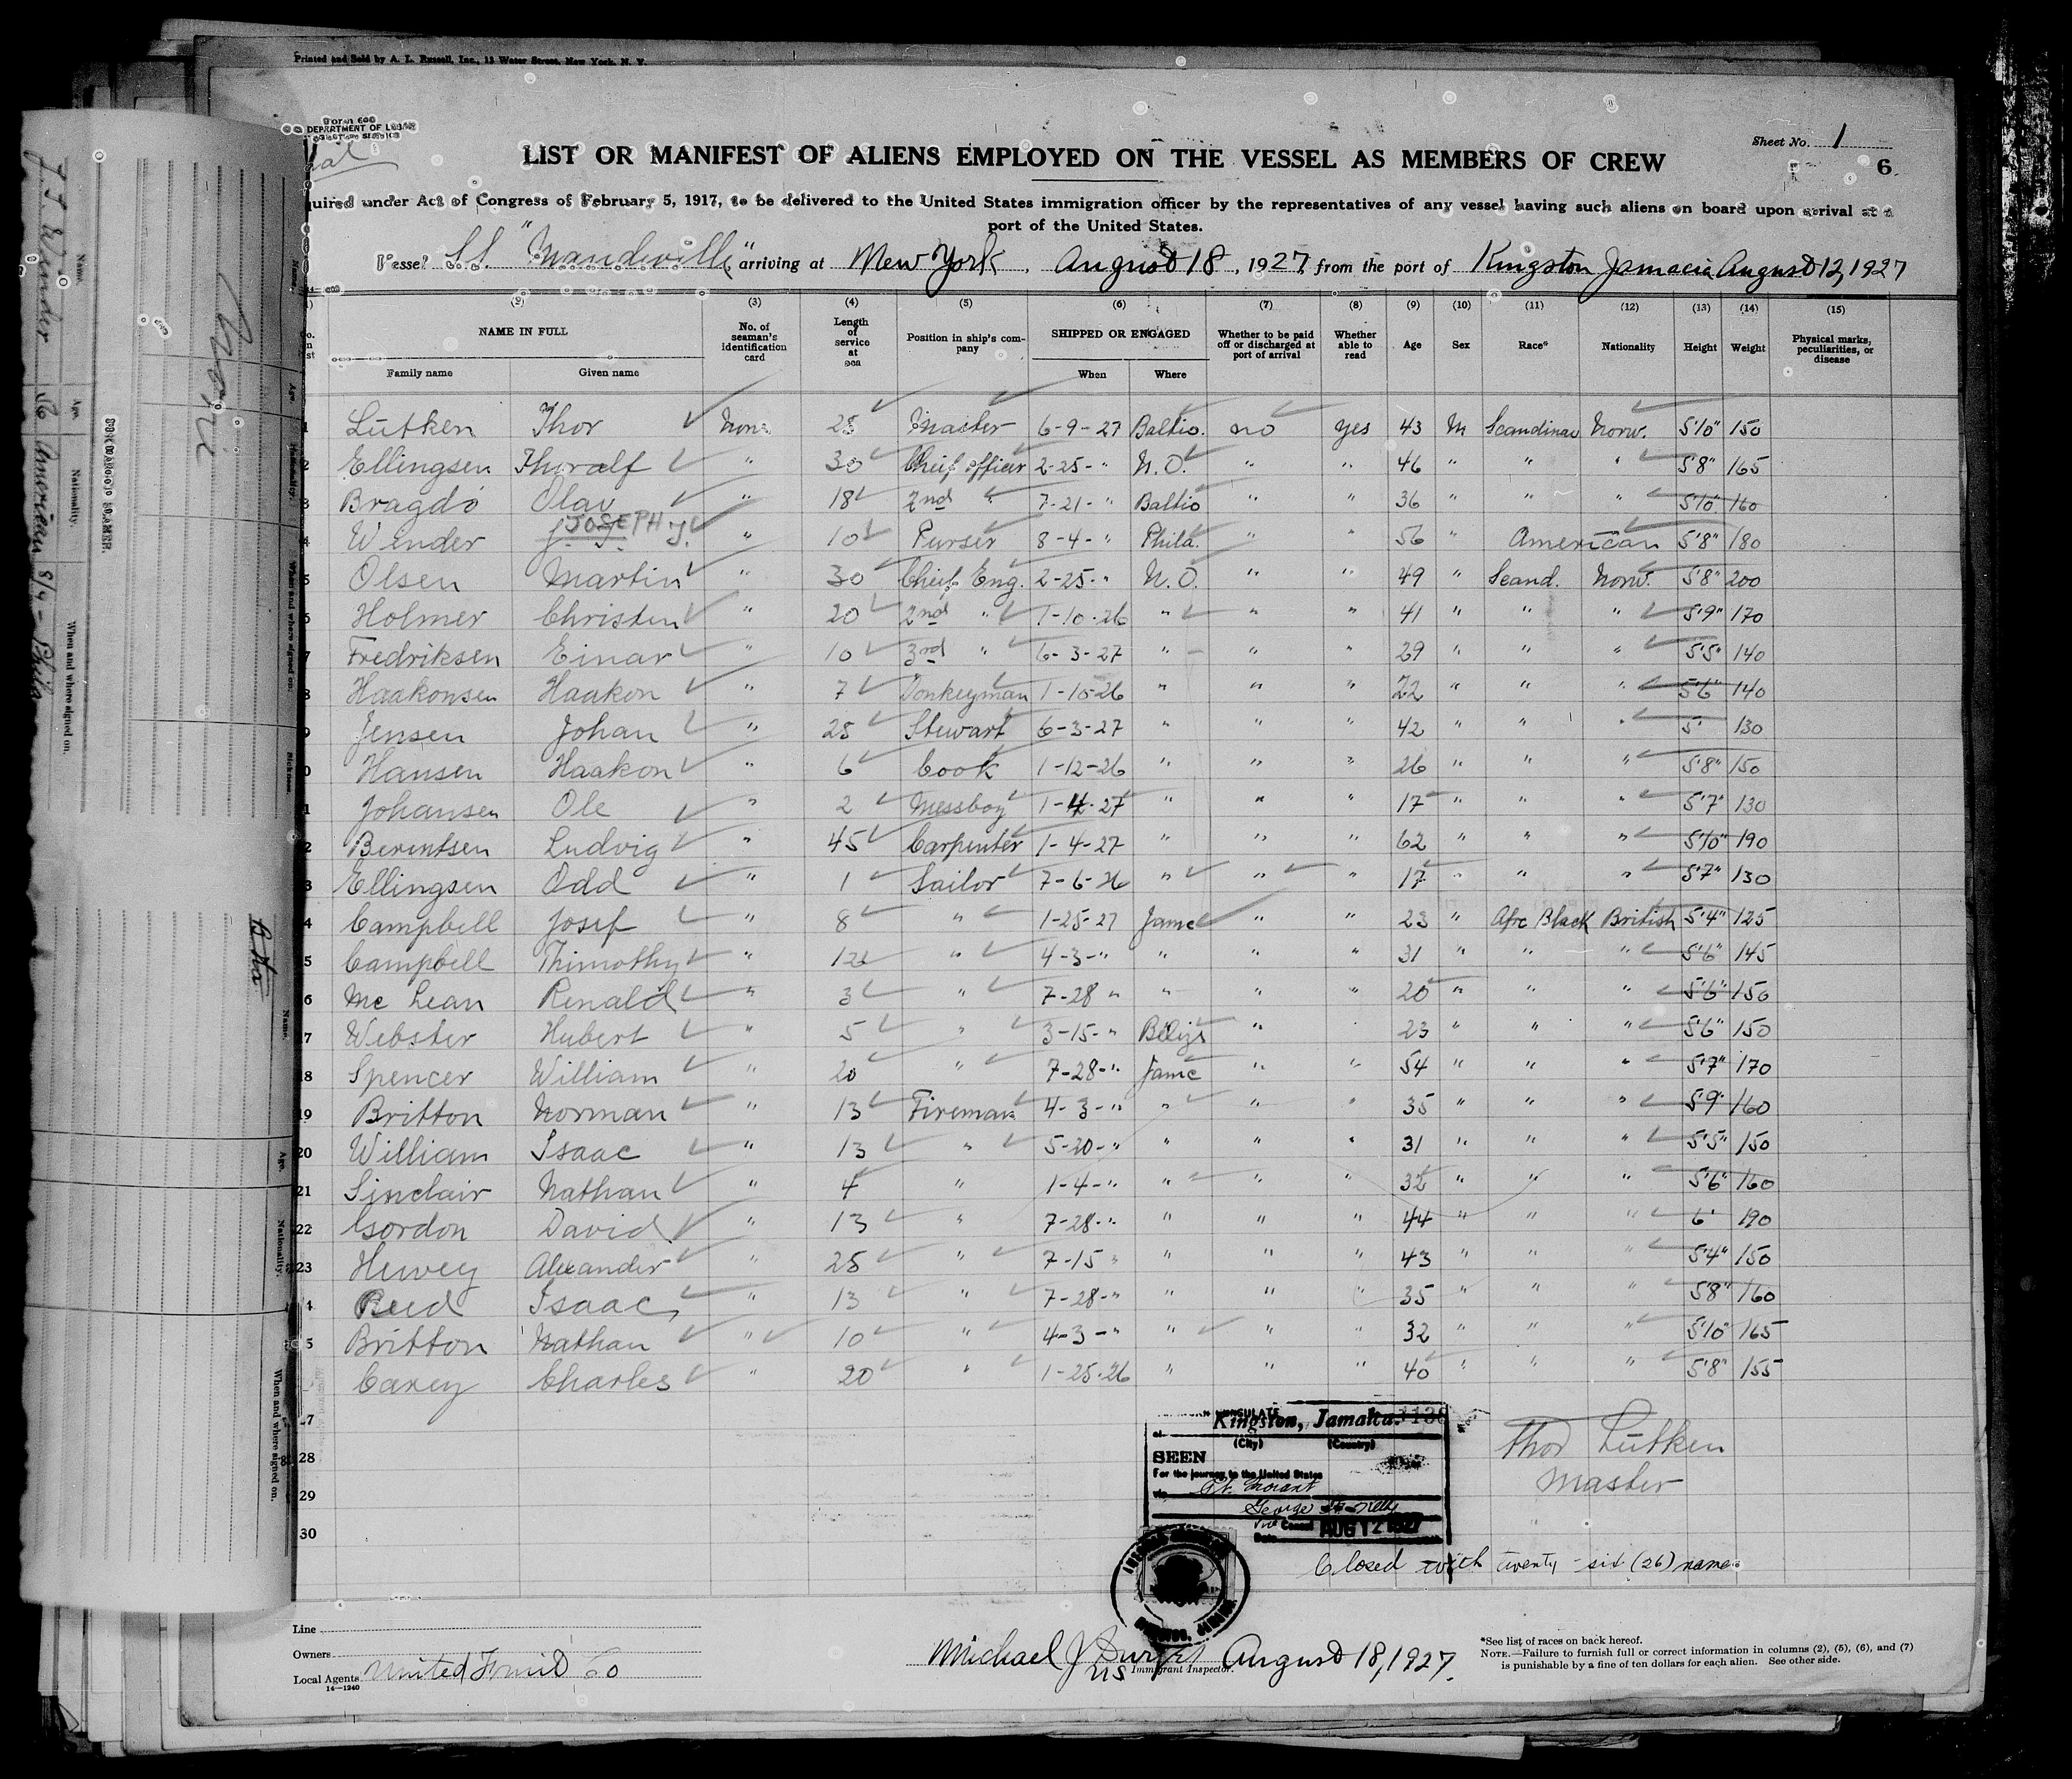 Printed and Sold by A. L. Russell, Inc., 13 Water Street, New York, N. Y.
Form 680
DEPARTMENT OF LABOR
Sheet No. 1
LIST OR MANIFEST OF ALIENS EMPLOYED ON THE VESSEL AS MEMBERS OF CREW
6
quired under Act of Congress of February 5, 1917, to be delivered to the United States immigration officer by the representatives of any vessel having such aliens on board upon arrival at a
port of the United States.
Vessel S.S. "Mandeville" arriving at New York, August 18, 1927, from the port of Kingston Jamacia August 12, 1927
(2) (3) (4) (5) (6) (7) (8) (9) (10) (11) (12) (13) (14) (15)
NAME IN FULL No. of seaman's identification card Length of service at sea Position in ship's company SHIPPED OR ENGAGED Whether to be paid off or discharged at port of arrival Whether able to read Age Sex Race* Nationality Height Weight Physical marks, peculiarities, or disease
Family name Given name When Where
1 Lutken Thor None 25 Master 6-9-27 Baltio. no yes 43 M Scandinav Norw. 5'10" 150
2 Ellingsen Thoralf " 30 Chief officer 2-25-" N.O. " " 46 " " " 5'8" 165
3 Bragdo Olav " 18 2nd " 7-21-" Baltio " " 36 " " " 5'10" 160
4 Winder J. J. JOSEPH J. " 10 Purser 8-4-" Phila. " " 56 " American 5'8" 180
5 Olsen Martin " 30 Chief Eng. 2-25-" N.O. " " 49 " Scand. Norw. 5'8" 200
6 Holmer Christen " 20 2nd " 1-10-26 " " " 41 " " " 5'9" 170
7 Fredriksen Einar " 10 3rd " 6-3-27 " " " 29 " " " 5'5" 140
8 Haakonsen Haakon " 7 Donkeyman 1-10-26 " " " 22 " " " 5'6" 140
9 Jensen Johan " 25 Stewart 6-3-27 " " " 42 " " " 5' 130
0 Hansen Haakon " 6 Cook 1-12-26 " " " 26 " " " 5'8" 150
1 Johansen Ole " 2 Messboy 1-4-27 " " " 17 " " " 5'7" 130
2 Berentsen Ludvig " 45 Carpenter 1-4-27 " " " 62 " " " 5'10" 190
3 Ellingsen Odd " 1 Sailor 7-6-26 " " " 17 " " " 5'7" 130
4 Campbell Josef " 8 " 1-25-27 Jamc " " 23 " Afrc Black British 5'4" 125
5 Campbell Thimothy " 12 " 4-3-" " " " 31 " " " 5'6" 145
6 Mc Lean Renald " 3 " 7-28 " " " " 20 " " " 5'6" 150
7 Webster Hubert " 5 " 3-15-" Belize " 23 " " " 5'6" 150
18 Spencer William " 20 " 7-28-" Jamc " " 54 " " " 5'7" 170
19 Britton Norman " 13 Fireman 4-3-" " " " 35 " " " 5'9" 160
20 William Isaac " 13 " 5-20-" " " " 31 " " " 5'5" 150
21 Sinclair Nathan " 4 " 1-4-" " " " 32 " " " 5'6" 160
22 Gordon David " 13 " 7-28-" " " " 44 " " " 6' 190
23 Huvey Alexander " 25 " 7-15 " " " " 43 " " " 5'4" 150
4 Reid Isaac " 13 " 7-28-" " " " 35 " " " 5'8" 160
5 Britton Nathan " 10 " 4-3-" " " " 32 " " " 5'10" 165
Carey Charles " 20 " 1-25-26 " " " 40 " " " 5'8" 155
7
28
29
30
Kingston, Jamaica.
(City) (Country)
SEEN
For the journey to the United States
via Pt. Morant
Vice Consul
Date AUG 12 1927
Thor Lutken
Master
Closed with twenty-six (26) names
Line
Owners
Local Agents United Fruit Co
14—1240
Michael J.
US Immigrant Inspector.
August 18, 1927.
*See list of races on back hereof.
NOTE.—Failure to furnish full or correct information in columns (2), (5), (6), and (7)
is punishable by a fine of ten dollars for each alien. See other side.
Name. Age. Nationality. When and where signed on.
J. J. Winder 56 American 8/4 - Phila
None
Name. Age. Nationality. When and where signed on. Sickness.
Name. Age. Nationality. When and where signed on.